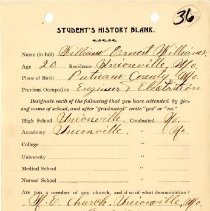 36
STUDENT'S HISTORY BLANK.
Name (in full) William Ernest Williams,
Age 20 Residence Unionville, Mo.
Place of Birth Putnam County, Mo.
Previous Occupation Engineer & Electrician
Designate each of the following that you have attended by giving name of school, and after "graduated" write "yes" or "no".
High School Unionville, Graduated
Academy Unionville
College
University
Medical School
Nurses' School
Are you a member of any church, and if so what denomination?
M. E. Church, Unionville, Mo.